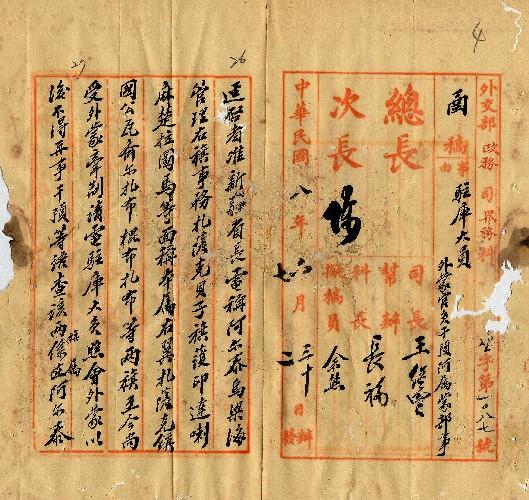 4
外交部政務司界務科
字第一〇八七號
函稿
事由
駐庫大員
外蒙官吏干預阿屬蒙部事
總長
次長
司長 王
幫辦
科長 長福
擬稿員
中華民國八年
月
三十日
二日
辦
發
26
逕啟者准新疆省長電稱阿尔泰烏梁海
管理右旗事務札薩克貝子旗護印達喇
麻楚拉圖馬等面稱本屬右翼札薩克鎮
國公瓦齊尔札布棍布札布等兩旗至今尚
受外蒙牽制請電駐庫大員照會外蒙以
27
後不得再事干預等語查該兩旗係阿尔泰